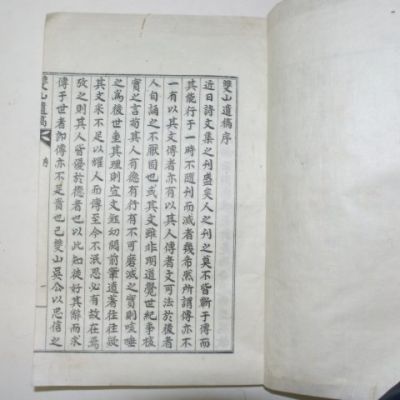 雙山遺稿序
近日詩文集之刊盛矣人之刊之莫不皆蘄于傳而
其能行于一時不隨刊而滅者幾希然所謂傳亦不
一有以其文傳者亦有以其人傳者文可法於後者
人自誦之不厭固也或其文雖非明道覺世紀事核
實之言苟其人有德有行有不可磨滅之實則咳唾
之爲後世重其理則宜文
其文采不足以耀人而傳至今不泯思必有故在焉
攷之則其人皆優於德者也以此知後好其辭而求
傳于世者知傳亦不足貴也已雙山吳公以忠信之
雙山遺稿
序
一